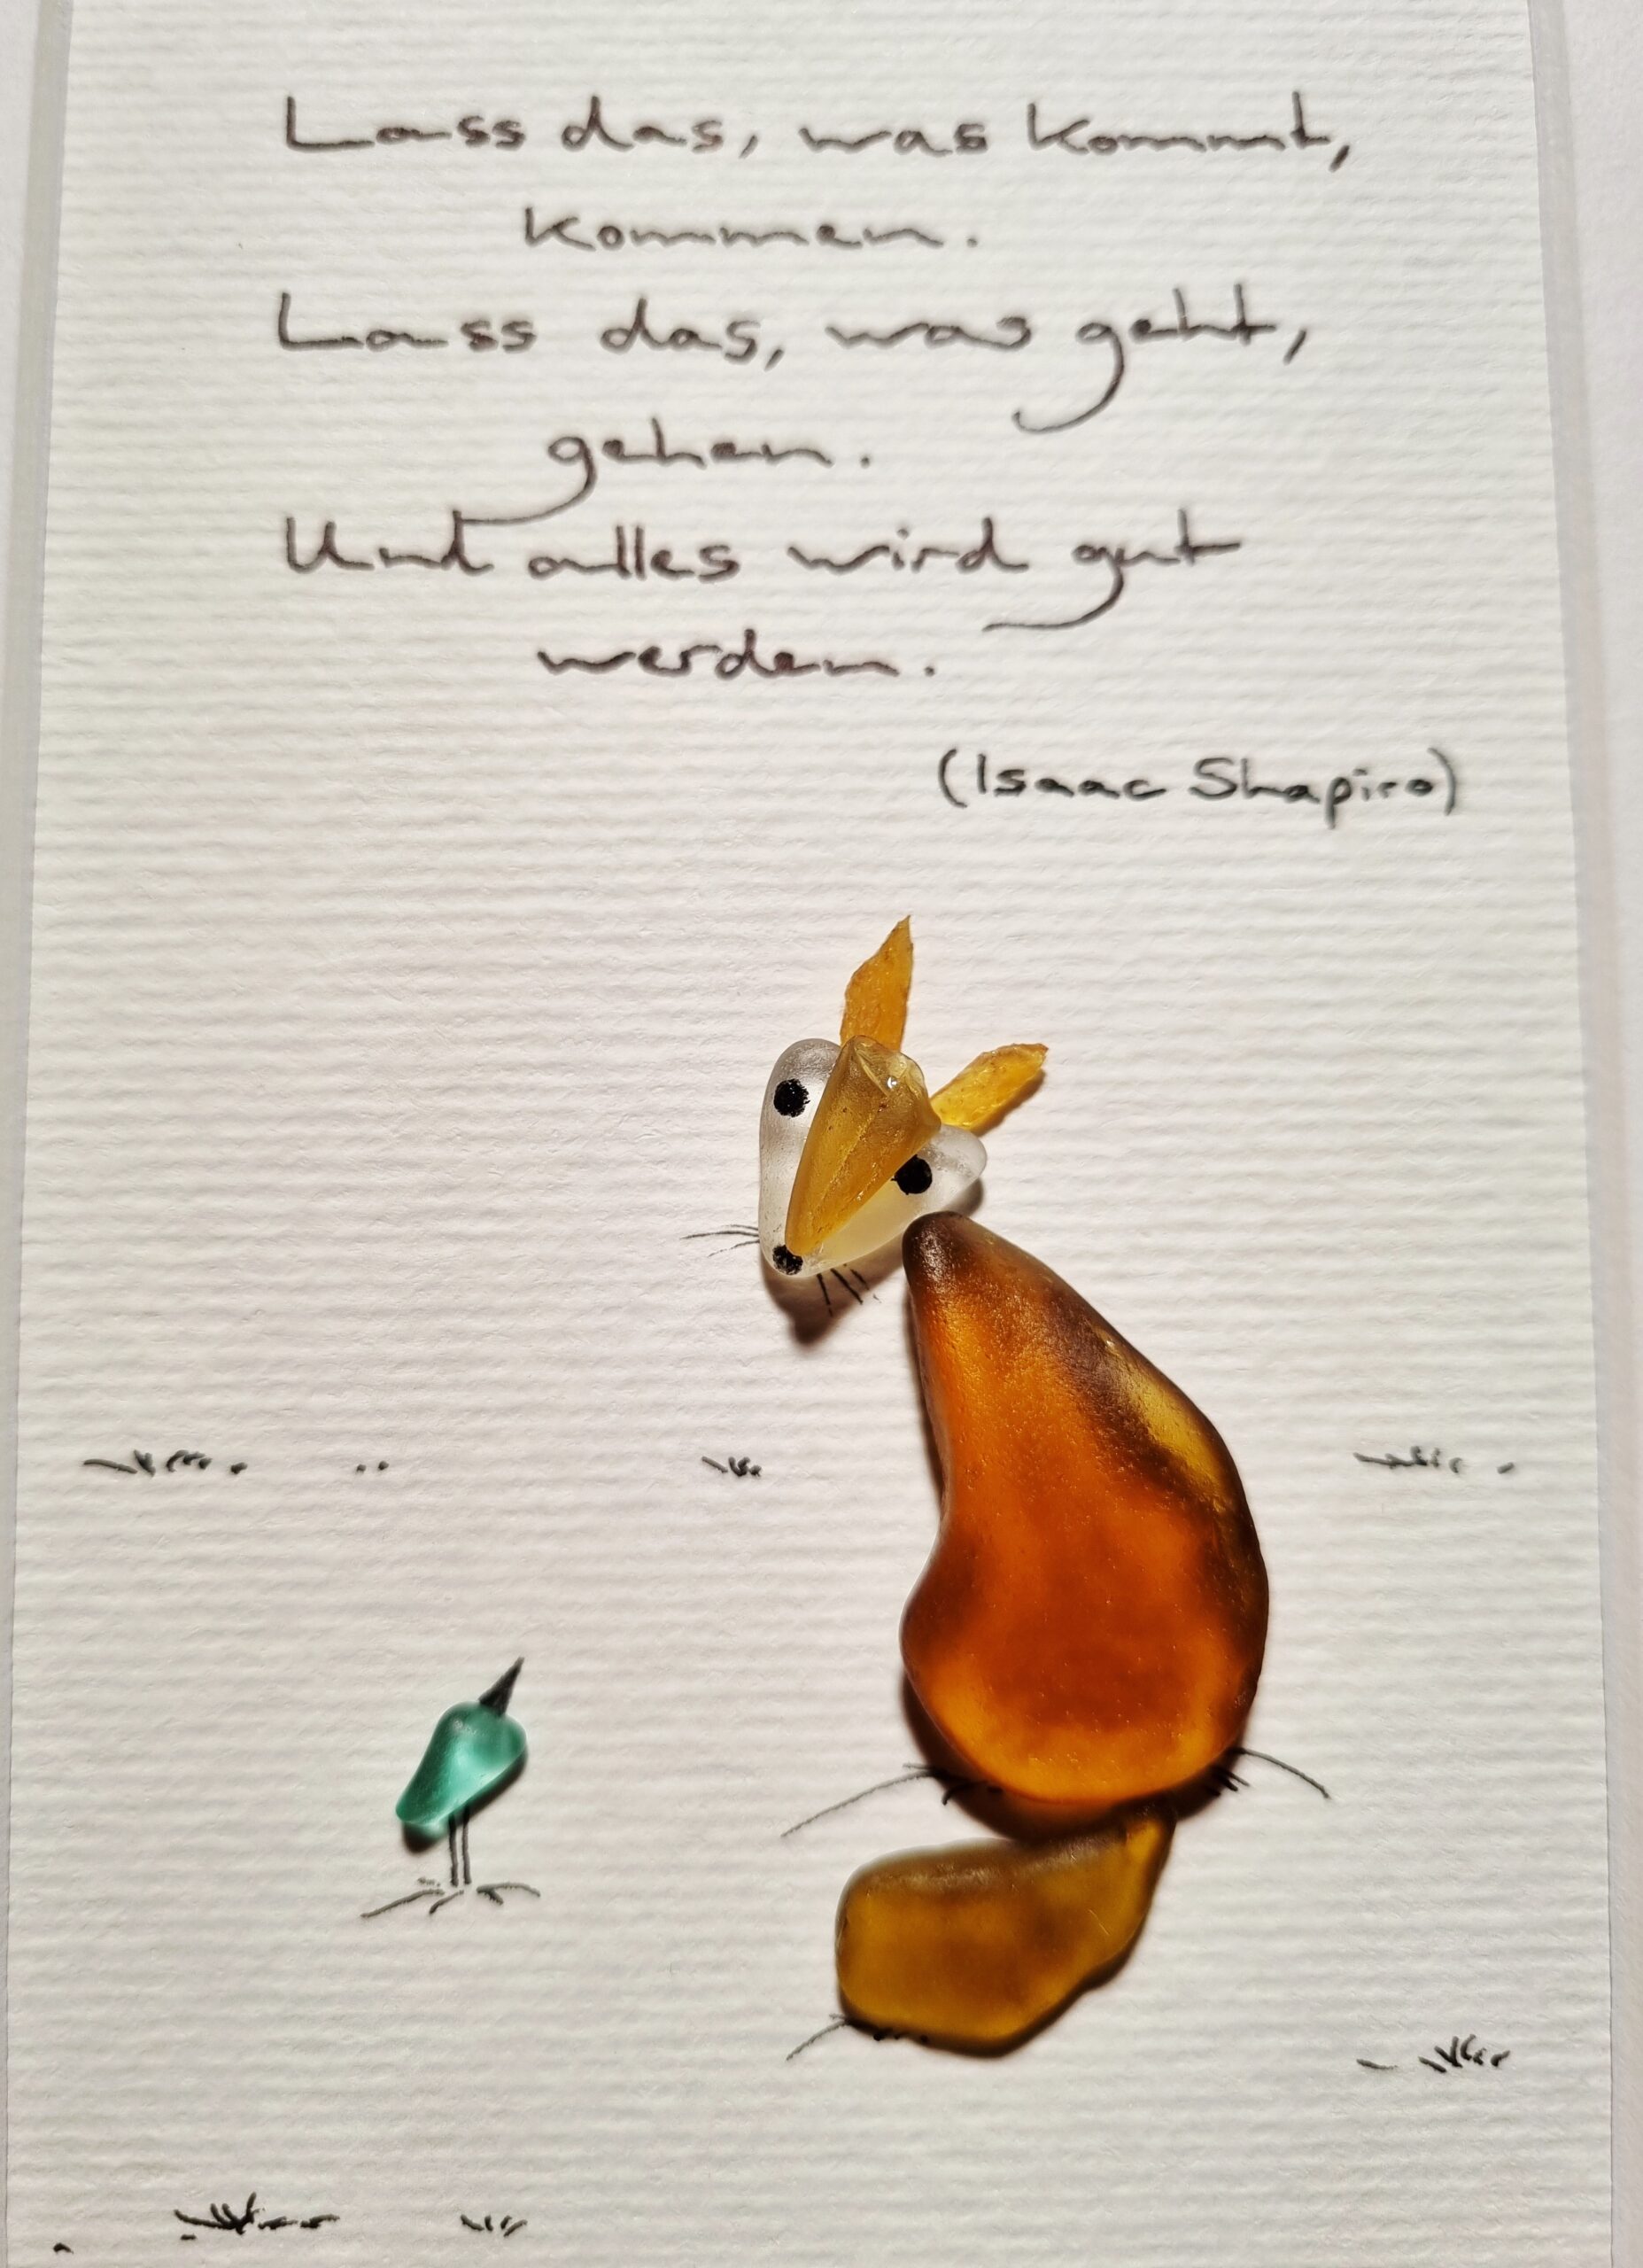 Lass das, was kommt,
kommen.
Lass das, was geht,
gehen.
Und alles wird gut
werden.
(Isaac Shapiro)